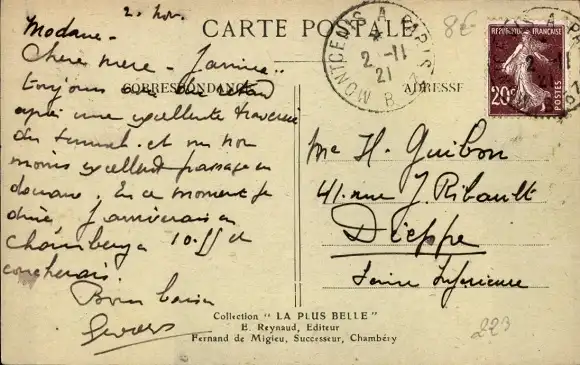 2. nov.
Modane -
CARTE POSTALE
CORRESPONDANCE
ADRESSE
8€
MONTCENIS A PARIS
4
2 - 11
21
B
REPUBLIQUE FRANÇAISE
POSTES
20c
Chere mere -
toujours
après une excellente traversée
du tunnel et un non
moins excellent passage en
douane. En ce moment je
dine J'arriverai a
Chambery a 10.
coucherai.
Bons baisers
Me H. Guibon
41. rue J. Ribault
Dieppe
Seine Inferieure
Collection " LA PLUS BELLE "
E. Reynaud, Editeur
Fernand de Migieu, Successeur, Chambéry
223